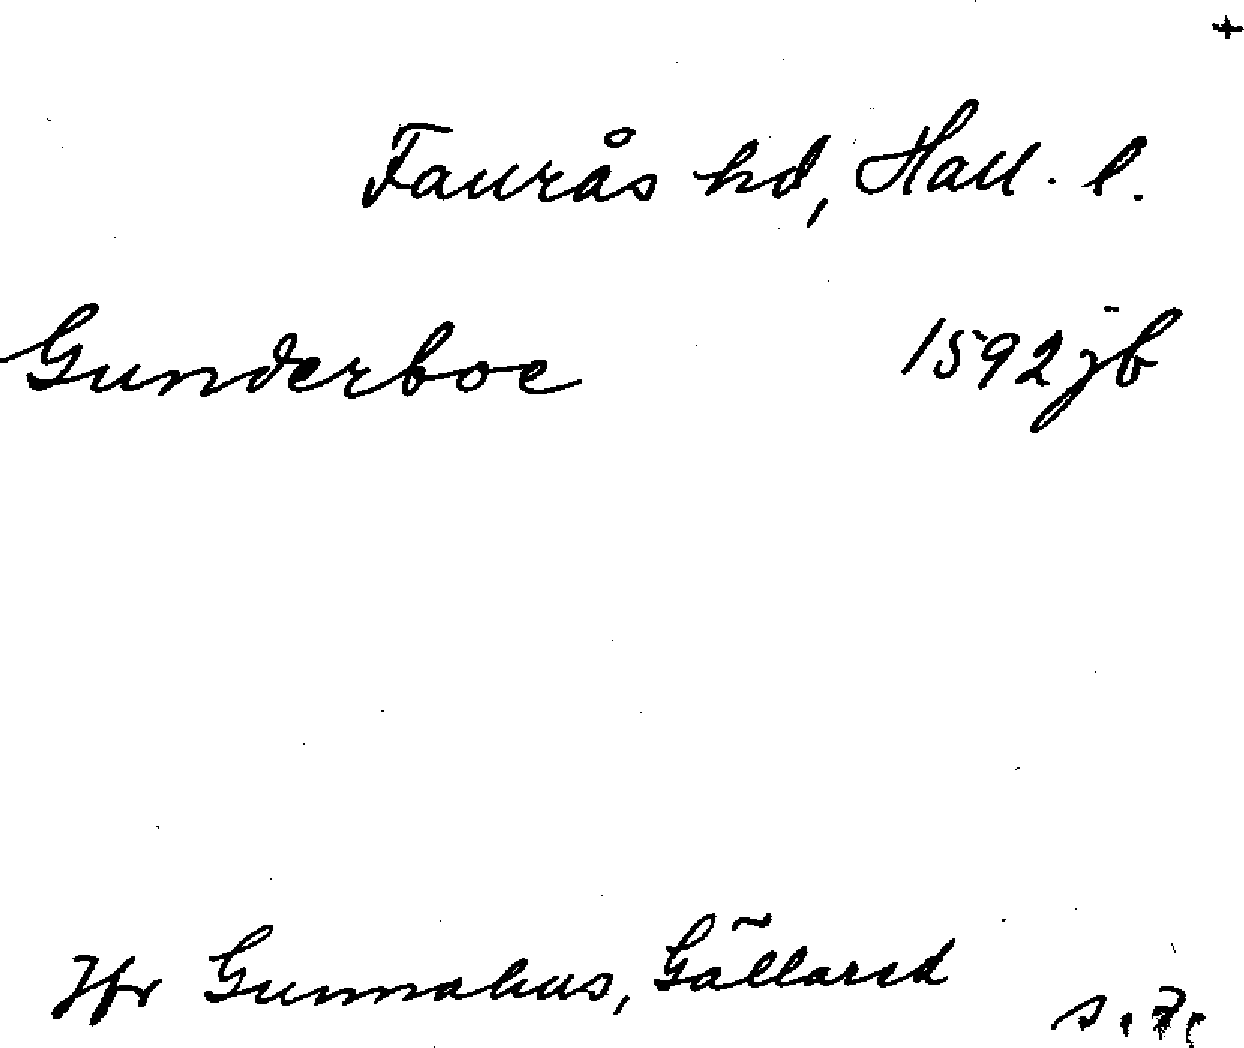 +
Faurås hd, Hall. l.
Gunderboe 1592 jb
Jfr Gunnahus, Gällared